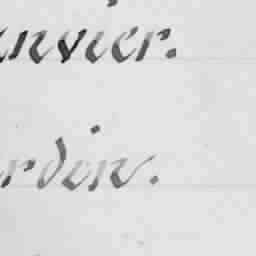 anvier.
rdin.